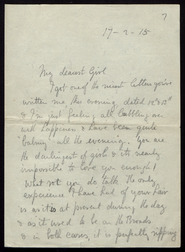 7
17-9-15
My dearest Girl
I got one of the nicest letters you've
written me, this evening dated 12th & 13th
& I'm just feeling all bubbling over
with happiness & have been quite
"balmy" all the evening. You are
the darlingest of girls & it's nearly
impossible to love you enough!
What not you do talk. The only
experience I have had of your fair
is as at present during the day
& as it used to be on the
in both cases, it is perfectly ripping